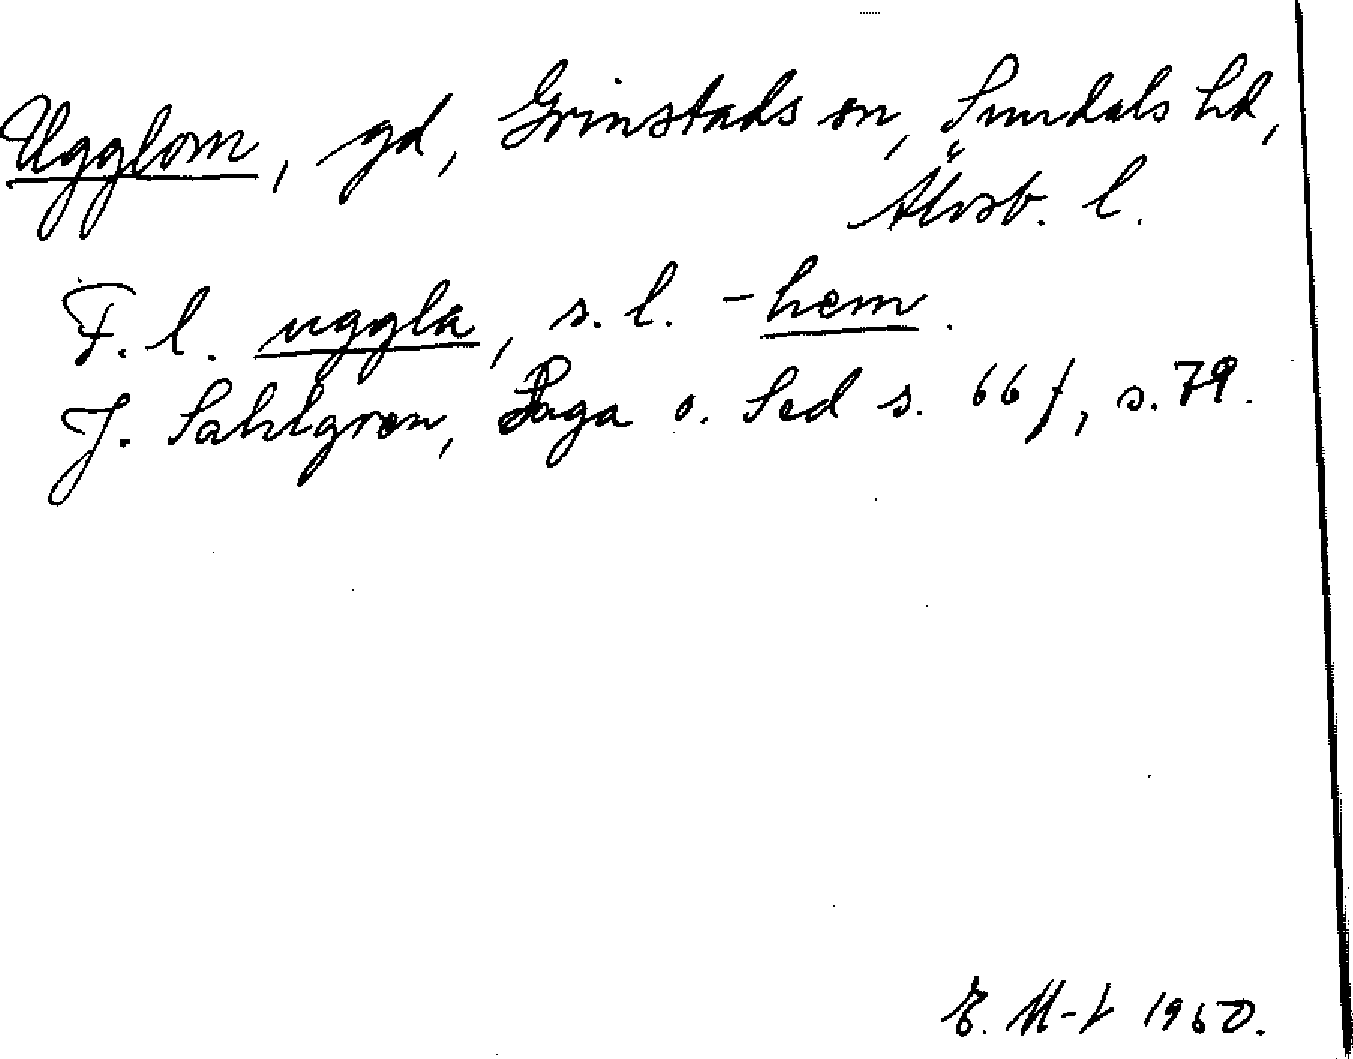 Ugglom, gd, Grinstads sn, Sundals hd,
Älvsb. l.
F. l. uggla, s. l. -hem.
J. Sahlgren, Saga o. Sed s. 66 f, s. 79.
E. M-t 1960.